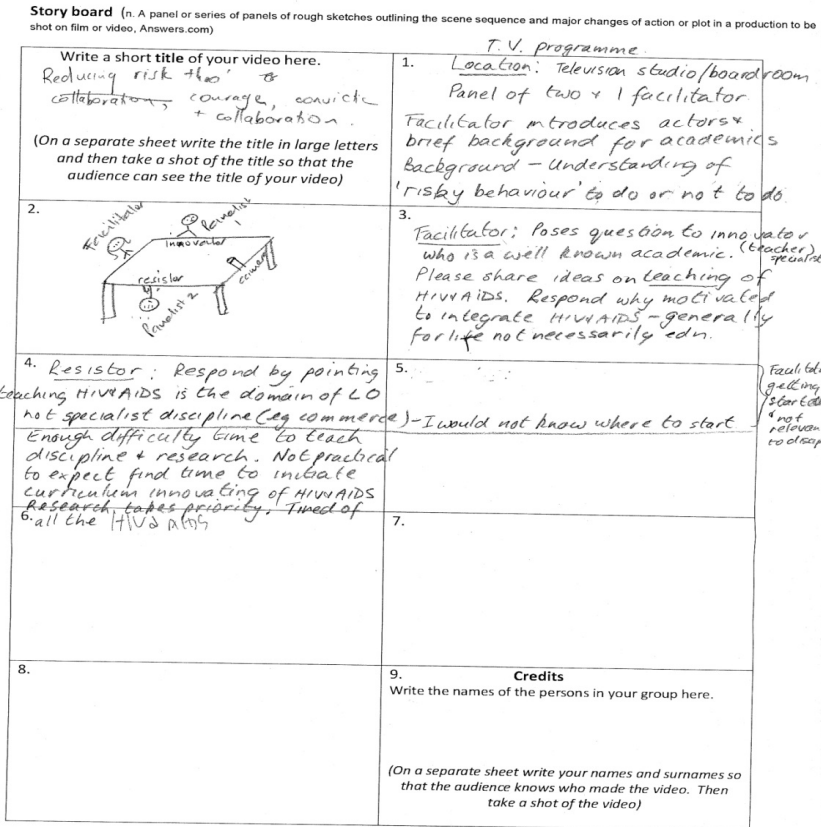 Story board (n. A panel or series of panels of rough sketches outlining the scene sequence and major changes of action or plot in a production to be
shot on film or video, Answers.com)
T.V. programme.
Write a short title of your video here.
Reducing risk thro'
collaboration, courage, convictic
+ collaboration.
(On a separate sheet write the title in large letters
and then take a shot of the title so that the
audience can see the title of your video)
1.
Location: Television studio/boardroom
Panel of two + 1 facilitator
Facilitator introduces actors &
brief background for academics
Background - Understanding of
'risky behaviour' to do or not to do
2.
Facilitator
Panelist 1
Innovator
resistor
Panelist 2
camera
3.
Facilitator: Poses question to innovator
(teacher)
who is a well known academic.
specialist
Please share ideas on teaching of
HIV & AIDS. Respond why motivated
to integrate HIV & AIDS - generally
for life not necessarily edn.
4. Resistor: Respond by pointing
teaching HIV & AIDS is the domain of LO
not specialist discipline (eg commerce) - I would not know where to start
Enough difficulty time to teach
discipline + research. Not practical
to expect find time to initiate
curriculum innovating of HIV & AIDS
Research takes priority. Tired of
6. all the HIV & AIDS
5.
getting
started
not
relevan
to discip
7.
8.
9. Credits
Write the names of the persons in your group here.
(On a separate sheet write your names and surnames so
that the audience knows who made the video. Then
take a shot of the video)